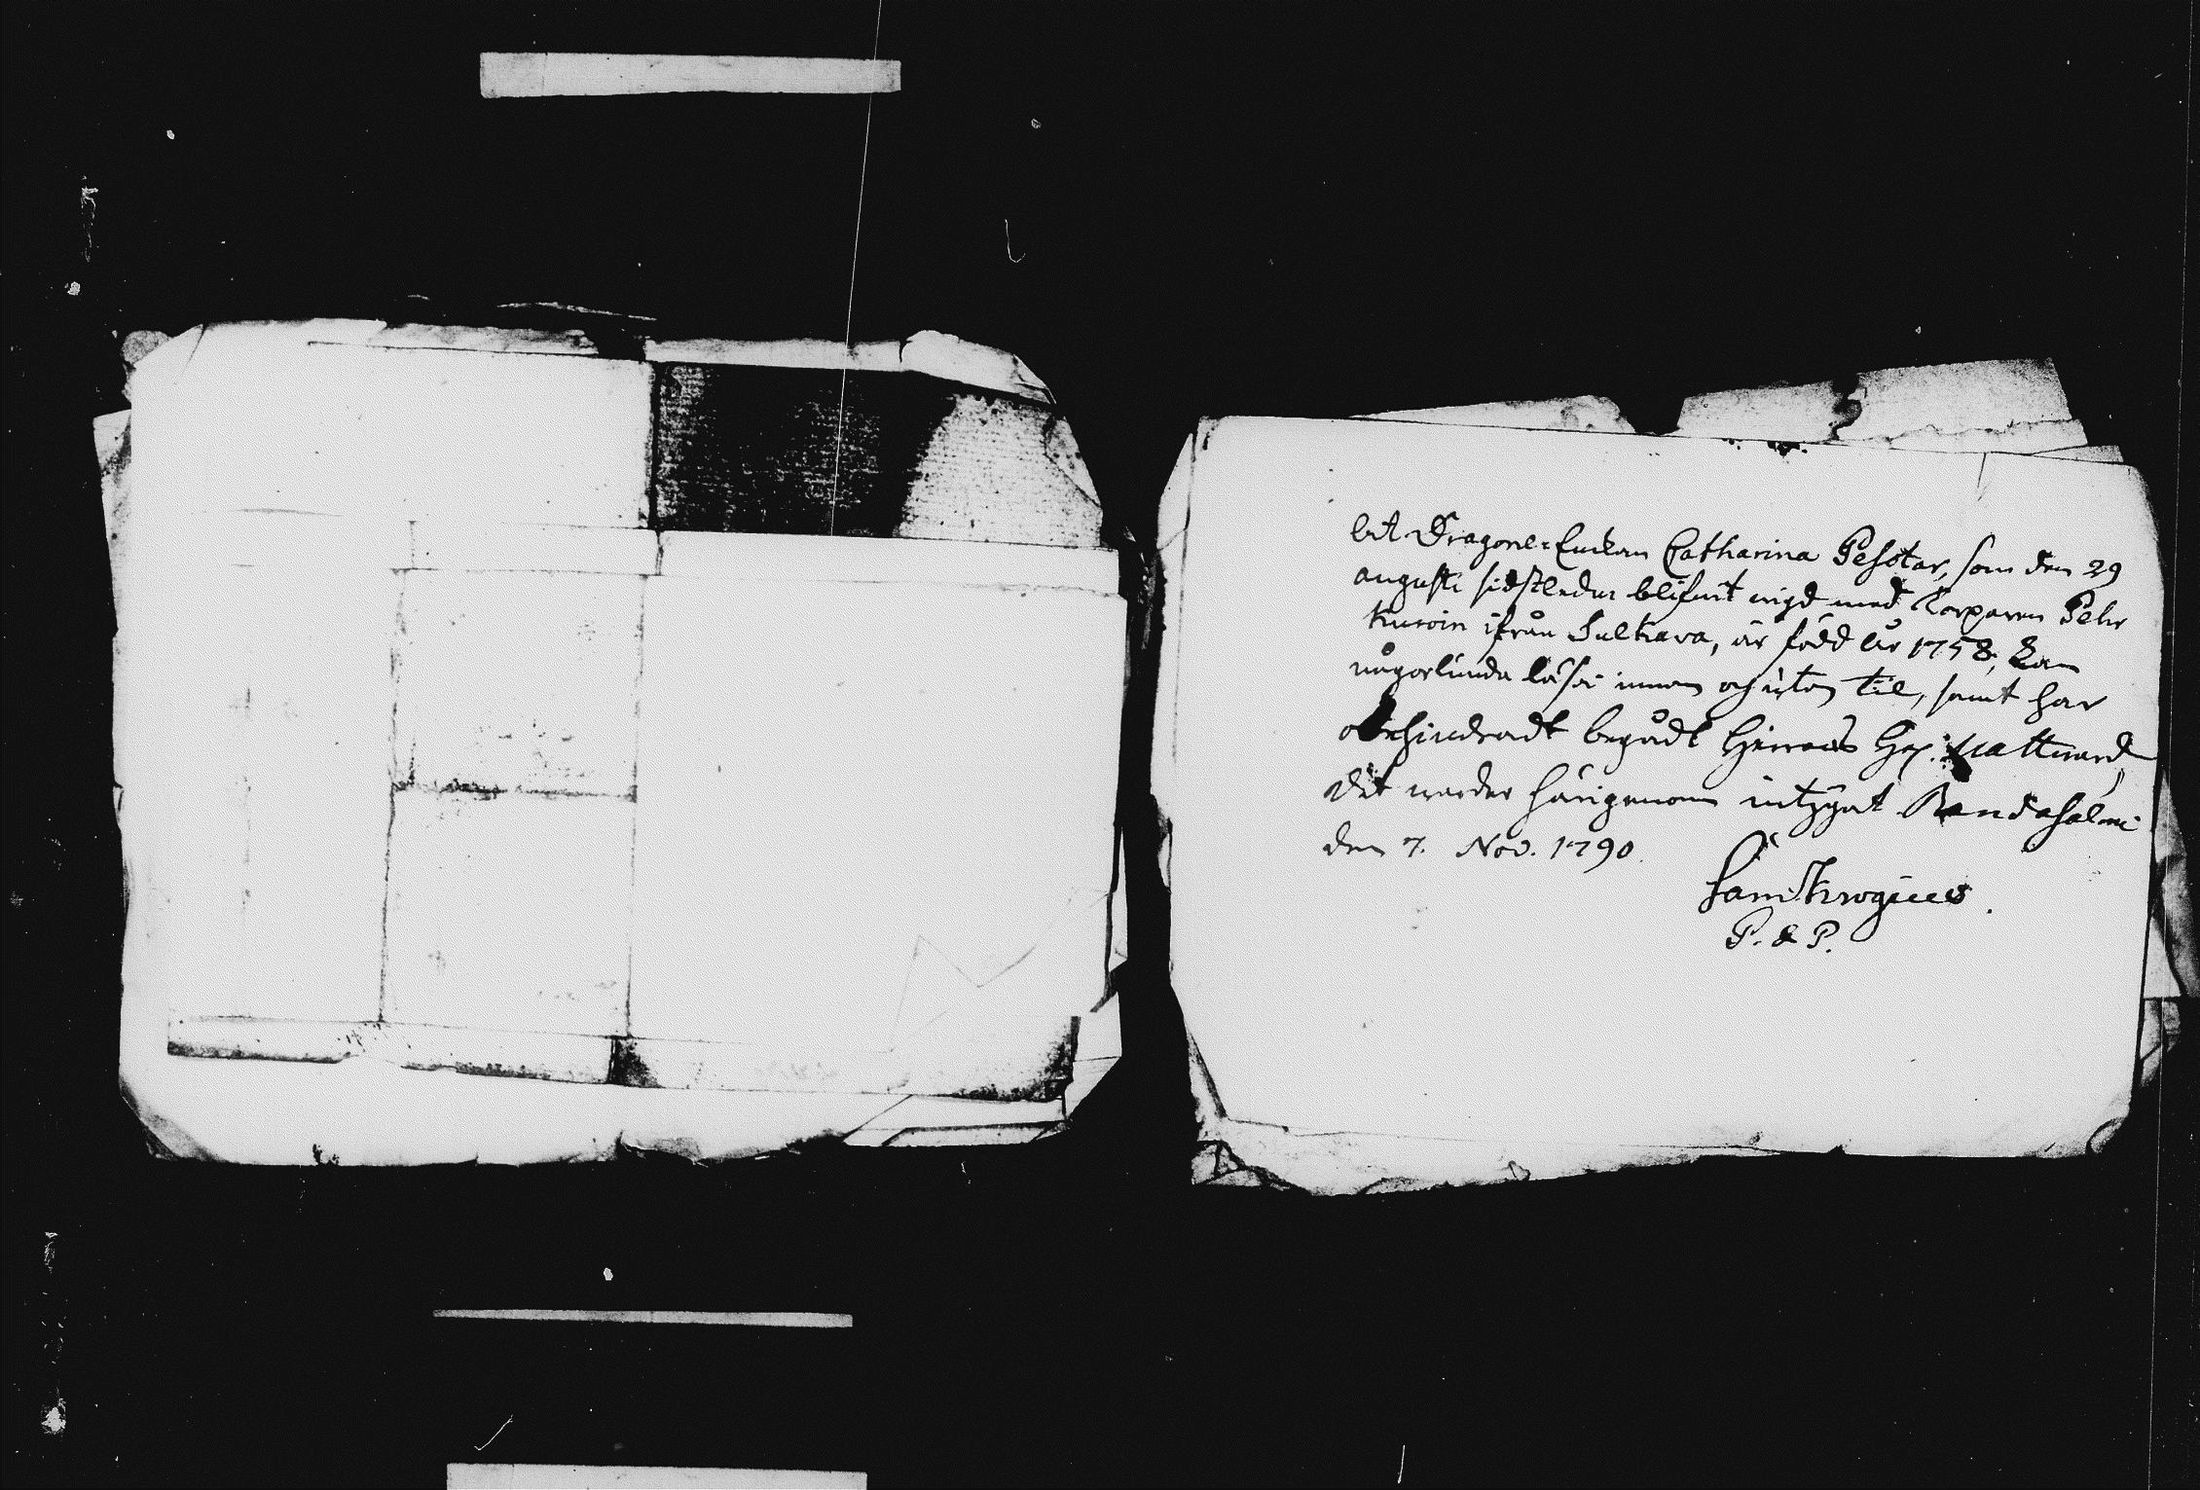 att Dragone-Enckan Catharina Pesotar, som den 29
augusti sidstledne blifwit wigd med Torparen Pehr
Kinroin ifrån Sulkava, är född år 1758, kan
någorlunda läsa innan och utan til, samt har
obehindradt begådt Herrans H. Nattward,
det warder härigenom intygat Randasalmi
den 7. Nov. 1790.
Sam Krogius.
P. & P.